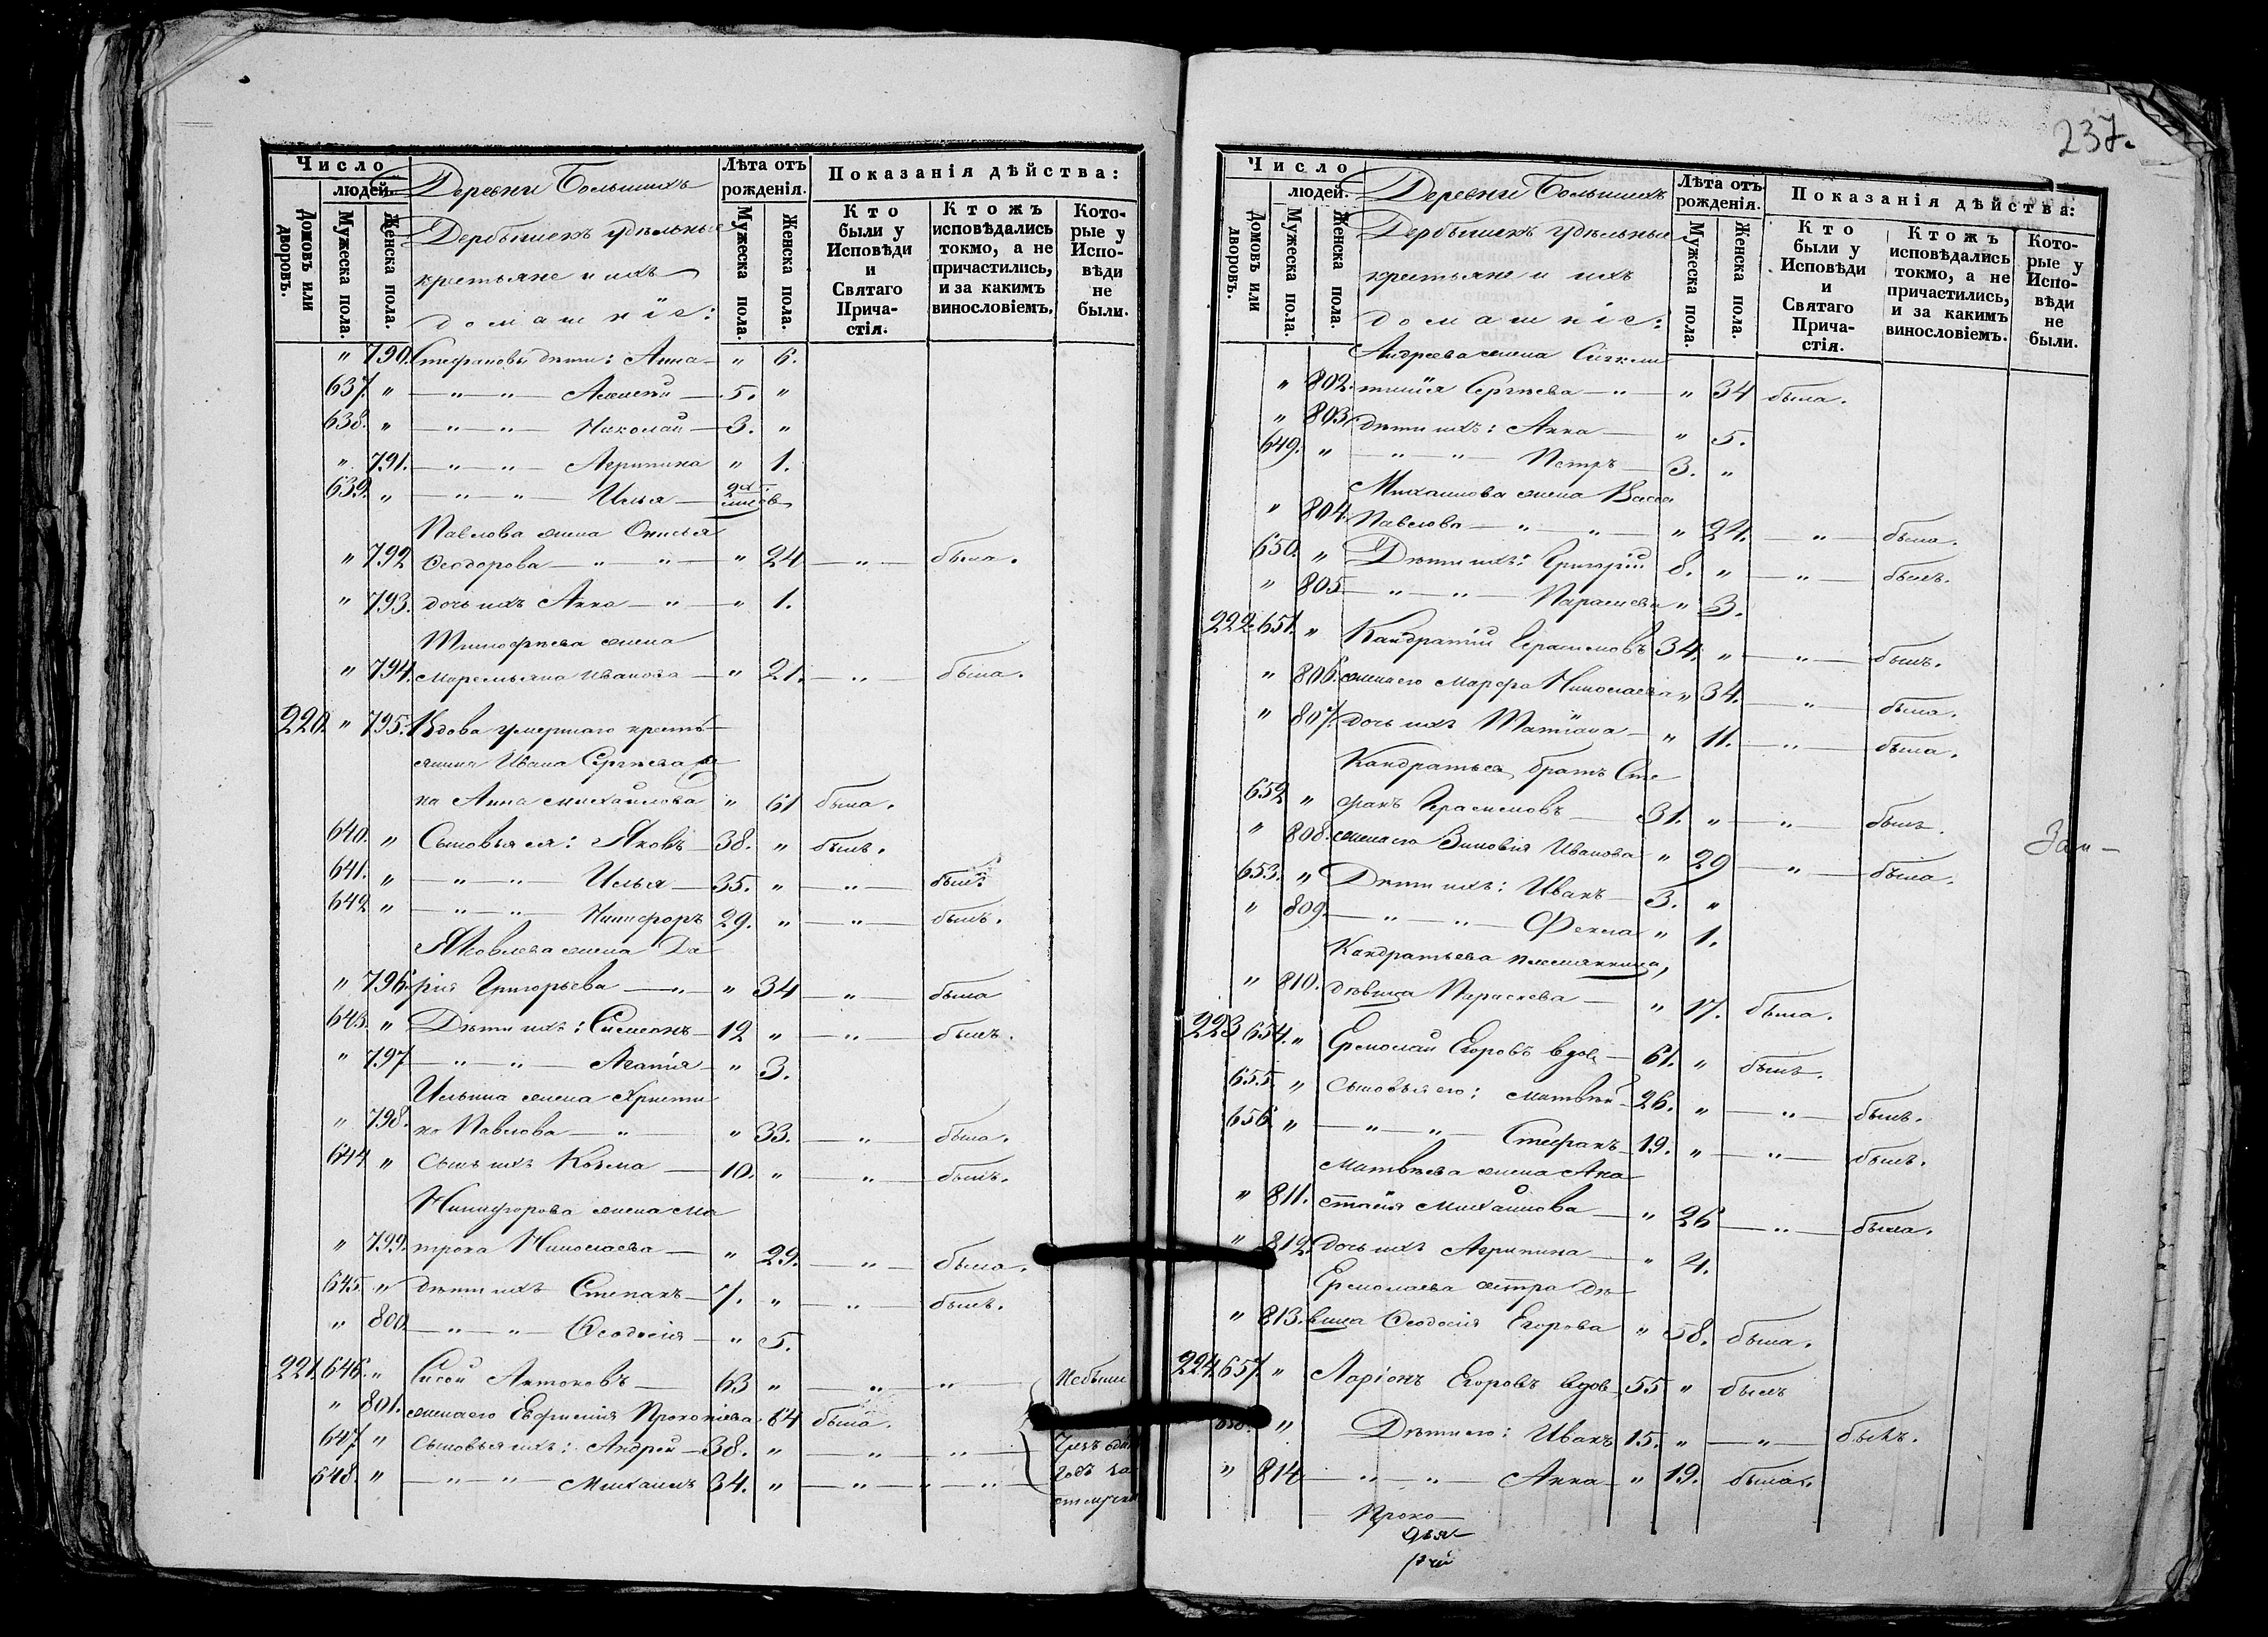 Число
людей.
Домовъ или дворовъ.
Мужеска пола.
Женска пола.
Деревни Большихъ
Дербышекъ удѣльные
крестьяне и ихъ
домашніе:
Лѣта отъ рожденія.
Мужеска пола.
Женска пола.
Показанія дѣйства:
Кто были у Исповѣди и Святаго Прича-стія.
Ктожъ исповѣдались токмо, а не причастились, и за какимъ винословіемъ.
Кото-рые у Испо-вѣди не были.
" 790. Стефановы дѣти: Анна — " 6.
637. " — " — " — Алексѣй — 5. "
638. " — " — " — Николай — 3. "
" 791. — " — " — Агрипина " 1.
639. " — " — " — Илья —
Павлова жена Онисья
" 792 Ѳеодорова — " — " — " 24 — " — была.
" 793. дочь ихъ Анна — " — " 1.
Тимофѣева жена
" 794. Маремьяна Иванова — " 21. — " — была.
220. " 795. Вдова умершаго кресть-
янина Ивана Сергѣева
на Анна Михайлова " 61 была.
640. " Сыновья ея: Яковъ — 38. " былъ.
641. " — " — " — Илья — 35. " — " — былъ.
642 " — " — " — Никифоръ 29. " — " — былъ.
Яковлева жена Да-
" 796. рія Григорьева — " — " 34 — " — была
643. " Дѣти ихъ: Симеонъ — 12 " — " — былъ.
" 797 — " — " — Агапія — " 3.
Ильина жена Христи
" 798. на Павлова — " — " 33. — " — была.
644 " Сынъ ихъ Козьма — 10. " — " — былъ.
Никифорова жена Ма
" 799. трона Николаева — " 29. — " — была.
645 " дѣти ихъ Степанъ — 7. " — " — былъ.
" 800. — " — " — Ѳеодосія — " 5.
221. 646. " Сисой Антоновъ — 63 " — " — " — Небыли
" 801. жена его Евфимія Прокопіева 64 была.
647. " Сыновья ихъ: Андрей — 38. " — " — " —
648. " — " — " — Михаилъ 34. " — " — " — " —
237.
Число
людей.
Домовъ или дворовъ.
Мужеска пола.
Женска пола.
Деревни Большихъ
Дербышекъ удѣльные
крестьяне и ихъ
домашніе:
Лѣта отъ рожденія.
Мужеска пола.
Женска пола.
Показанія дѣйства:
Кто были у Исповѣди и Святаго Прича-стія.
Ктожъ исповѣдались токмо, а не причастились, и за какимъ винословіемъ.
Кото-рые у Испо-вѣди не были.
Андреева жена
" 802. Сергѣева — " — " 34 была.
" 803. дѣти ихъ: Анна — " 5.
649. " — " — " — Петръ — 3. "
Михаилова жена Васса
" 804. Павлова — " — " — " 24. — " — была.
650. " Дѣти ихъ: Григорій 8. " — " — былъ.
" 805 — " — " — Параскева " 3.
222. 651. " Кандратій Герасимовъ 34. " — " — былъ.
" 806. жена его Марфа Николаева " 34. — " — была.
" 807. дочь ихъ Татіана — " 11. — " — была.
Кандратья братъ Сте
652 " фанъ Герасимовъ — 31. " — " — былъ.
" 808. жена его Зиновія Иванова " 29 — " — была.
653. " Дѣти ихъ: Иванъ — 3. "
" 809. — " — " — Фекла " 1.
Кандратьева племянница,
" 810. дѣвица Параскева — " 17. была.
223 654. " Ермолай Егоровъ вдов — 61. " былъ.
655. " Сыновья его: Матвѣй — 26. " — " — былъ.
656 " — " — " — Стефанъ — 19. " — " — былъ.
Матвѣева жена Ана
" 811. стасія Михаилова — " 26 — " — была.
" 812. дочь ихъ Агрипина — " 4.
Ермолаева сестра дѣ-
" 813. вица Ѳеодосія Егорова " 58. была.
224. 657. " Ларіонъ Егоровъ вдов — 55 " былъ
658. " Дѣти его: Иванъ 15. " — " — былъ.
" 814 — " — " — Анна — " 19. была.